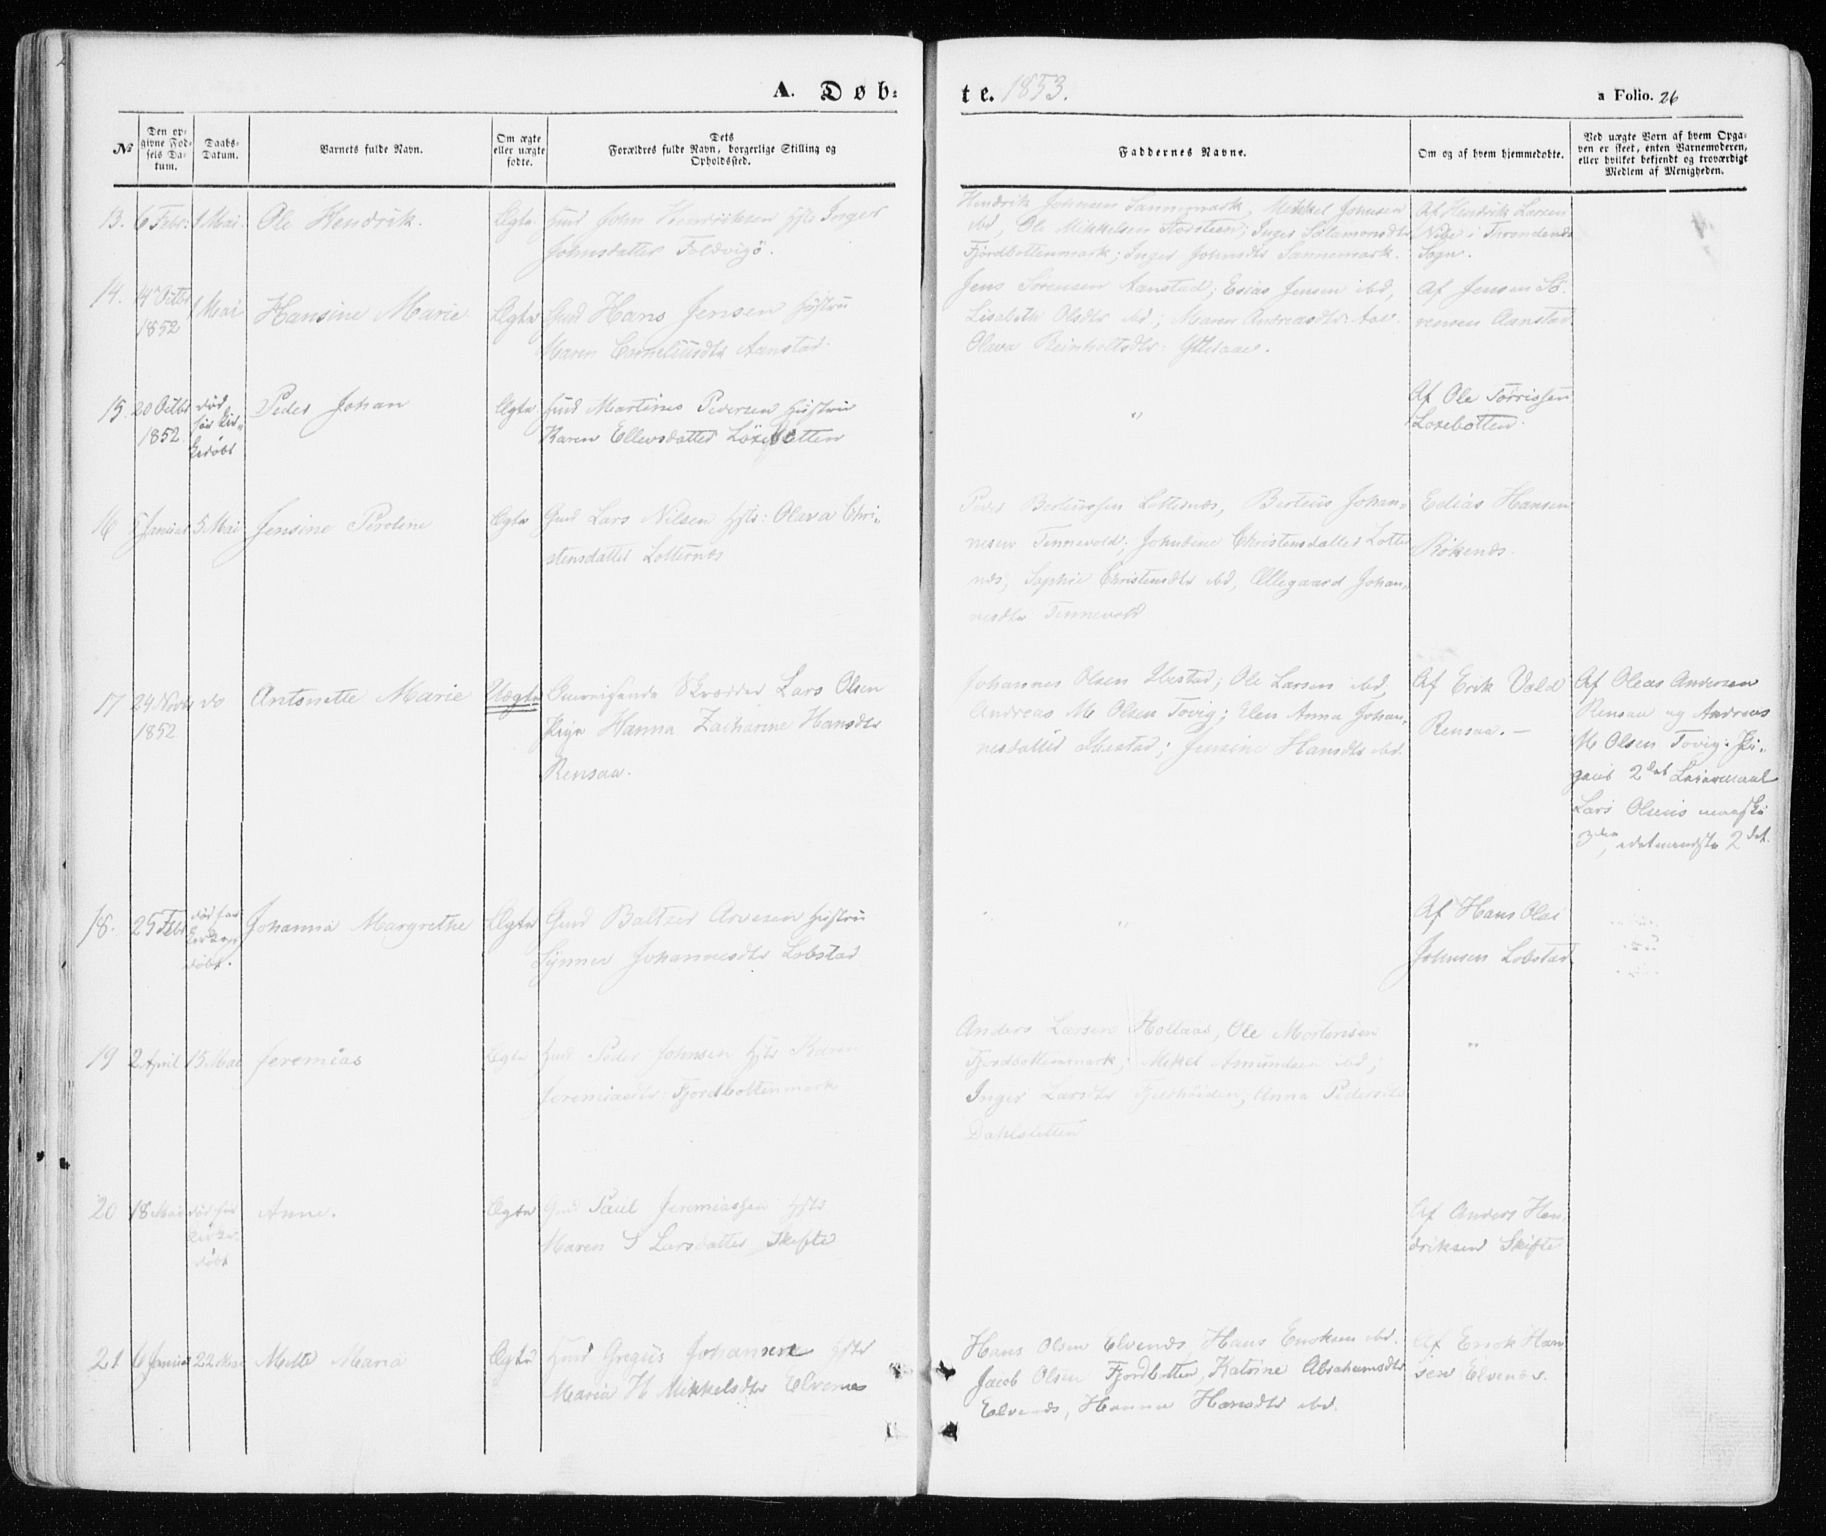 A. Døb-
te. 1853.
a Folio. 26
№
Den op-
givne Fød-
sels Da-
tum.
Daabs-
Datum.
Barnets fulde Navn.
Om ægte
eller uægte
fødte.
Dets
Forældres fulde Navn, borgerlige Stilling og
Opholdssted.
Faddernes Navne.
Om og af hvem hjemmedøbte.
Ved uægte Børn af hvem Opga-
ven er skeet, enten Barnemoderen,
eller hvilket bekjendt og troværdigt
Medlem af Menigheden.
13. 6 Febr: 1 Mai Ole Hendrik. Ægte Gmd John Hendriksen Hstr Inger
Johnsdatter Foldvigö.
Hendrik Johnsen Sannemark, Mikkel Johnsen
ibd, Ole Mikkelsen Stordsteen; Inger Salamonsdtr
Fjordbottenmark; Inger Johnsdtr Sannemark.
Af Hendrik Larsen
i Throndenæs
Sogn.
14. 14 Octbr 1 Mai Hansine Marie Ægte Gmd Hans Jensen Hustru
1852
Maren Corneliusdtr Aanstad.
Jens Sörensen Aanstad; Esias Jensen ibd,
Lisabeth Olsdtr ibd; Maren Andreasdtr
Olava Reinholtsdtr
Af Jensen Sö-
rensen Aanstad.
15. 20 Octbr död Peder Johan Ægte Gmd Martines Pedersen Hustru
1852. för kir-
kedöbt
Karen Ellevsdatter Löxebotten
"
Af Ole Torrissen
Loxebotten.
16 5 Januar 5 Mai Jensine Ægte Gmd Lars Nilsen Hstr: Olava Chri-
stensdatter Lotternes
Peder Berteussen Lotternes, Berteus Johan-
nesen Tennevold; Christensdatter Lotter
næs; Sophie Christensdtr ibd, Ollegaard Johan-
nesdtr Tennevold
Eelias Hansen
Rökenæs.
17 24 Novbr do Antonette Marie Uægte Lars Olsen
1852
Pige Hanna Zacharine Hansdtr
Rensaa.
Johannes Olsen Ibestad; Ole Larsen ibd,
Andreas M Olsen Tovig; Elen Anna Johan-
nesdatter Ibestad; Jensine Hansdtr ibd.
Af Erik Vold
Rensaa. —
Af Oleas Andersen
Rensaa og Andreas
M Olsen Tovig: Pi-
gens 2det Leiermaal
Lars Olsens maaske
3die, idetmindste 2det.
18. 25 Febr död för Johanna Margrethe Ægte Gmd Baltzer Arvesen Hustru
kirke-
döbt.
Synnev Johannesdtr Lobstad
"
Af Hans Olai
Johnsen Lobstad.
19 2 April 13 Mai Jeremias Ægte Gmd Peder Johnsen Hstr Karen
Jeremiasdtr: Fjordbottenmark
Anders Larsen Holtaas, Ole Mortensen
Fjordbottenmark; Mikel Amundsen ibd;
Inger Larsdtr Fjeldhöiden; Anna Pedersdtr
Dahlsletten
"
20 18 Mai död för Anne. Ægte Gmd Paul Jeremiassen Hstr
kirke-
döbt
Maren S Larsdatter Skifte
Af Anders Hen-
driksen Skifte
21. 6 Januar 22 Mai Mette Maria Ægte Gmd Gregus Johansen Hstr
Maria H Mikkelsdtr Elvenes
Hans Olsen Elvenæs, Hans Eriksen ibd.
Jacob Olsen Fjordbotten, Katrine Abrahamsdtr
Elvenæs, Hanna Hansdtr ibd.
Af Errik Han-
sen Elvenæs.